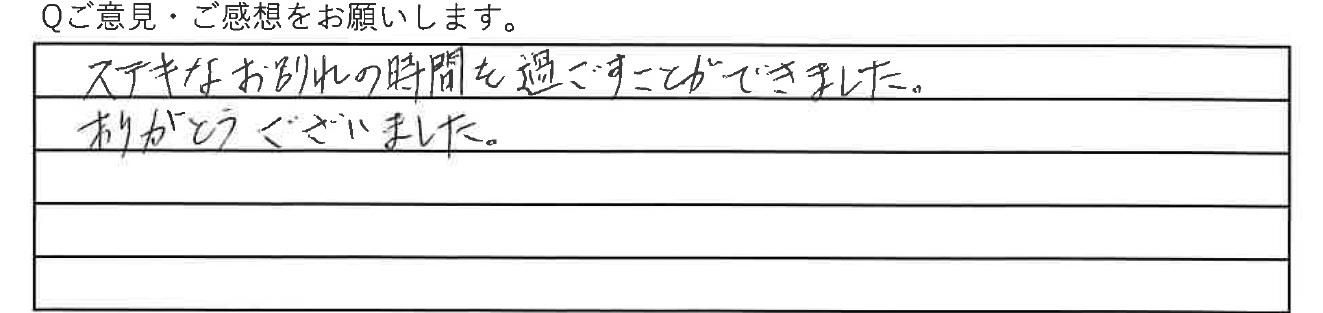 Qご意見・ご感想をお願いします。
ステキなお別れの時間を過ごすことができました。
ありがとうございました。